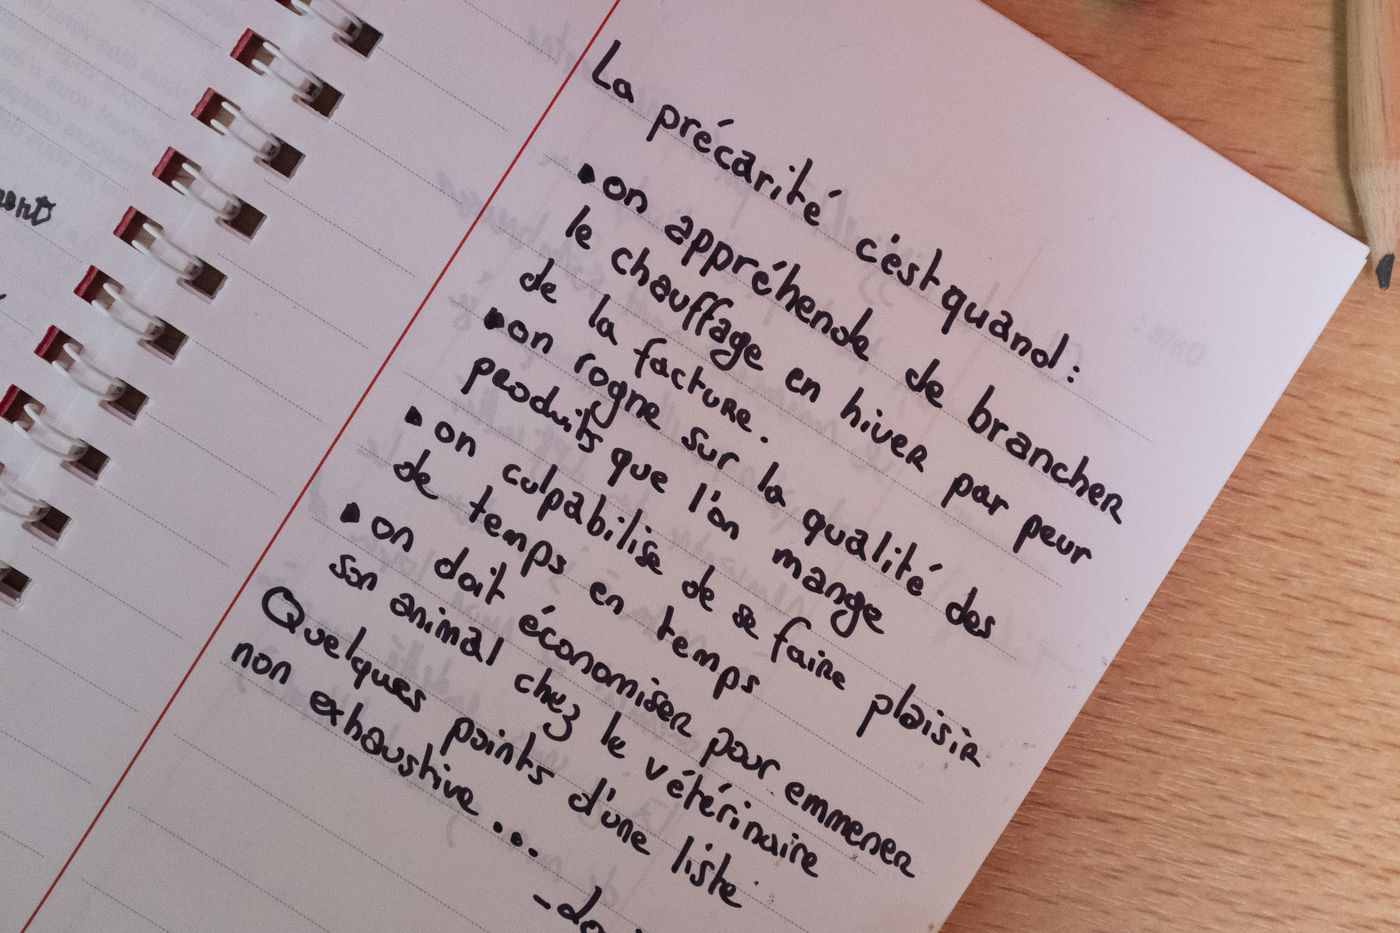 La précarité c'est quand :
▸ on appréhende de brancher
le chauffage en hiver par peur
de la facture.
▸ on rogne sur la qualité des
produits que l'on mange
▸ on culpabilise de se faire plaisir
de temps en temps
▸ on doit économiser pour emmener
son animal chez le vétérinaire
Quelques points d'une liste
non exhaustive ...